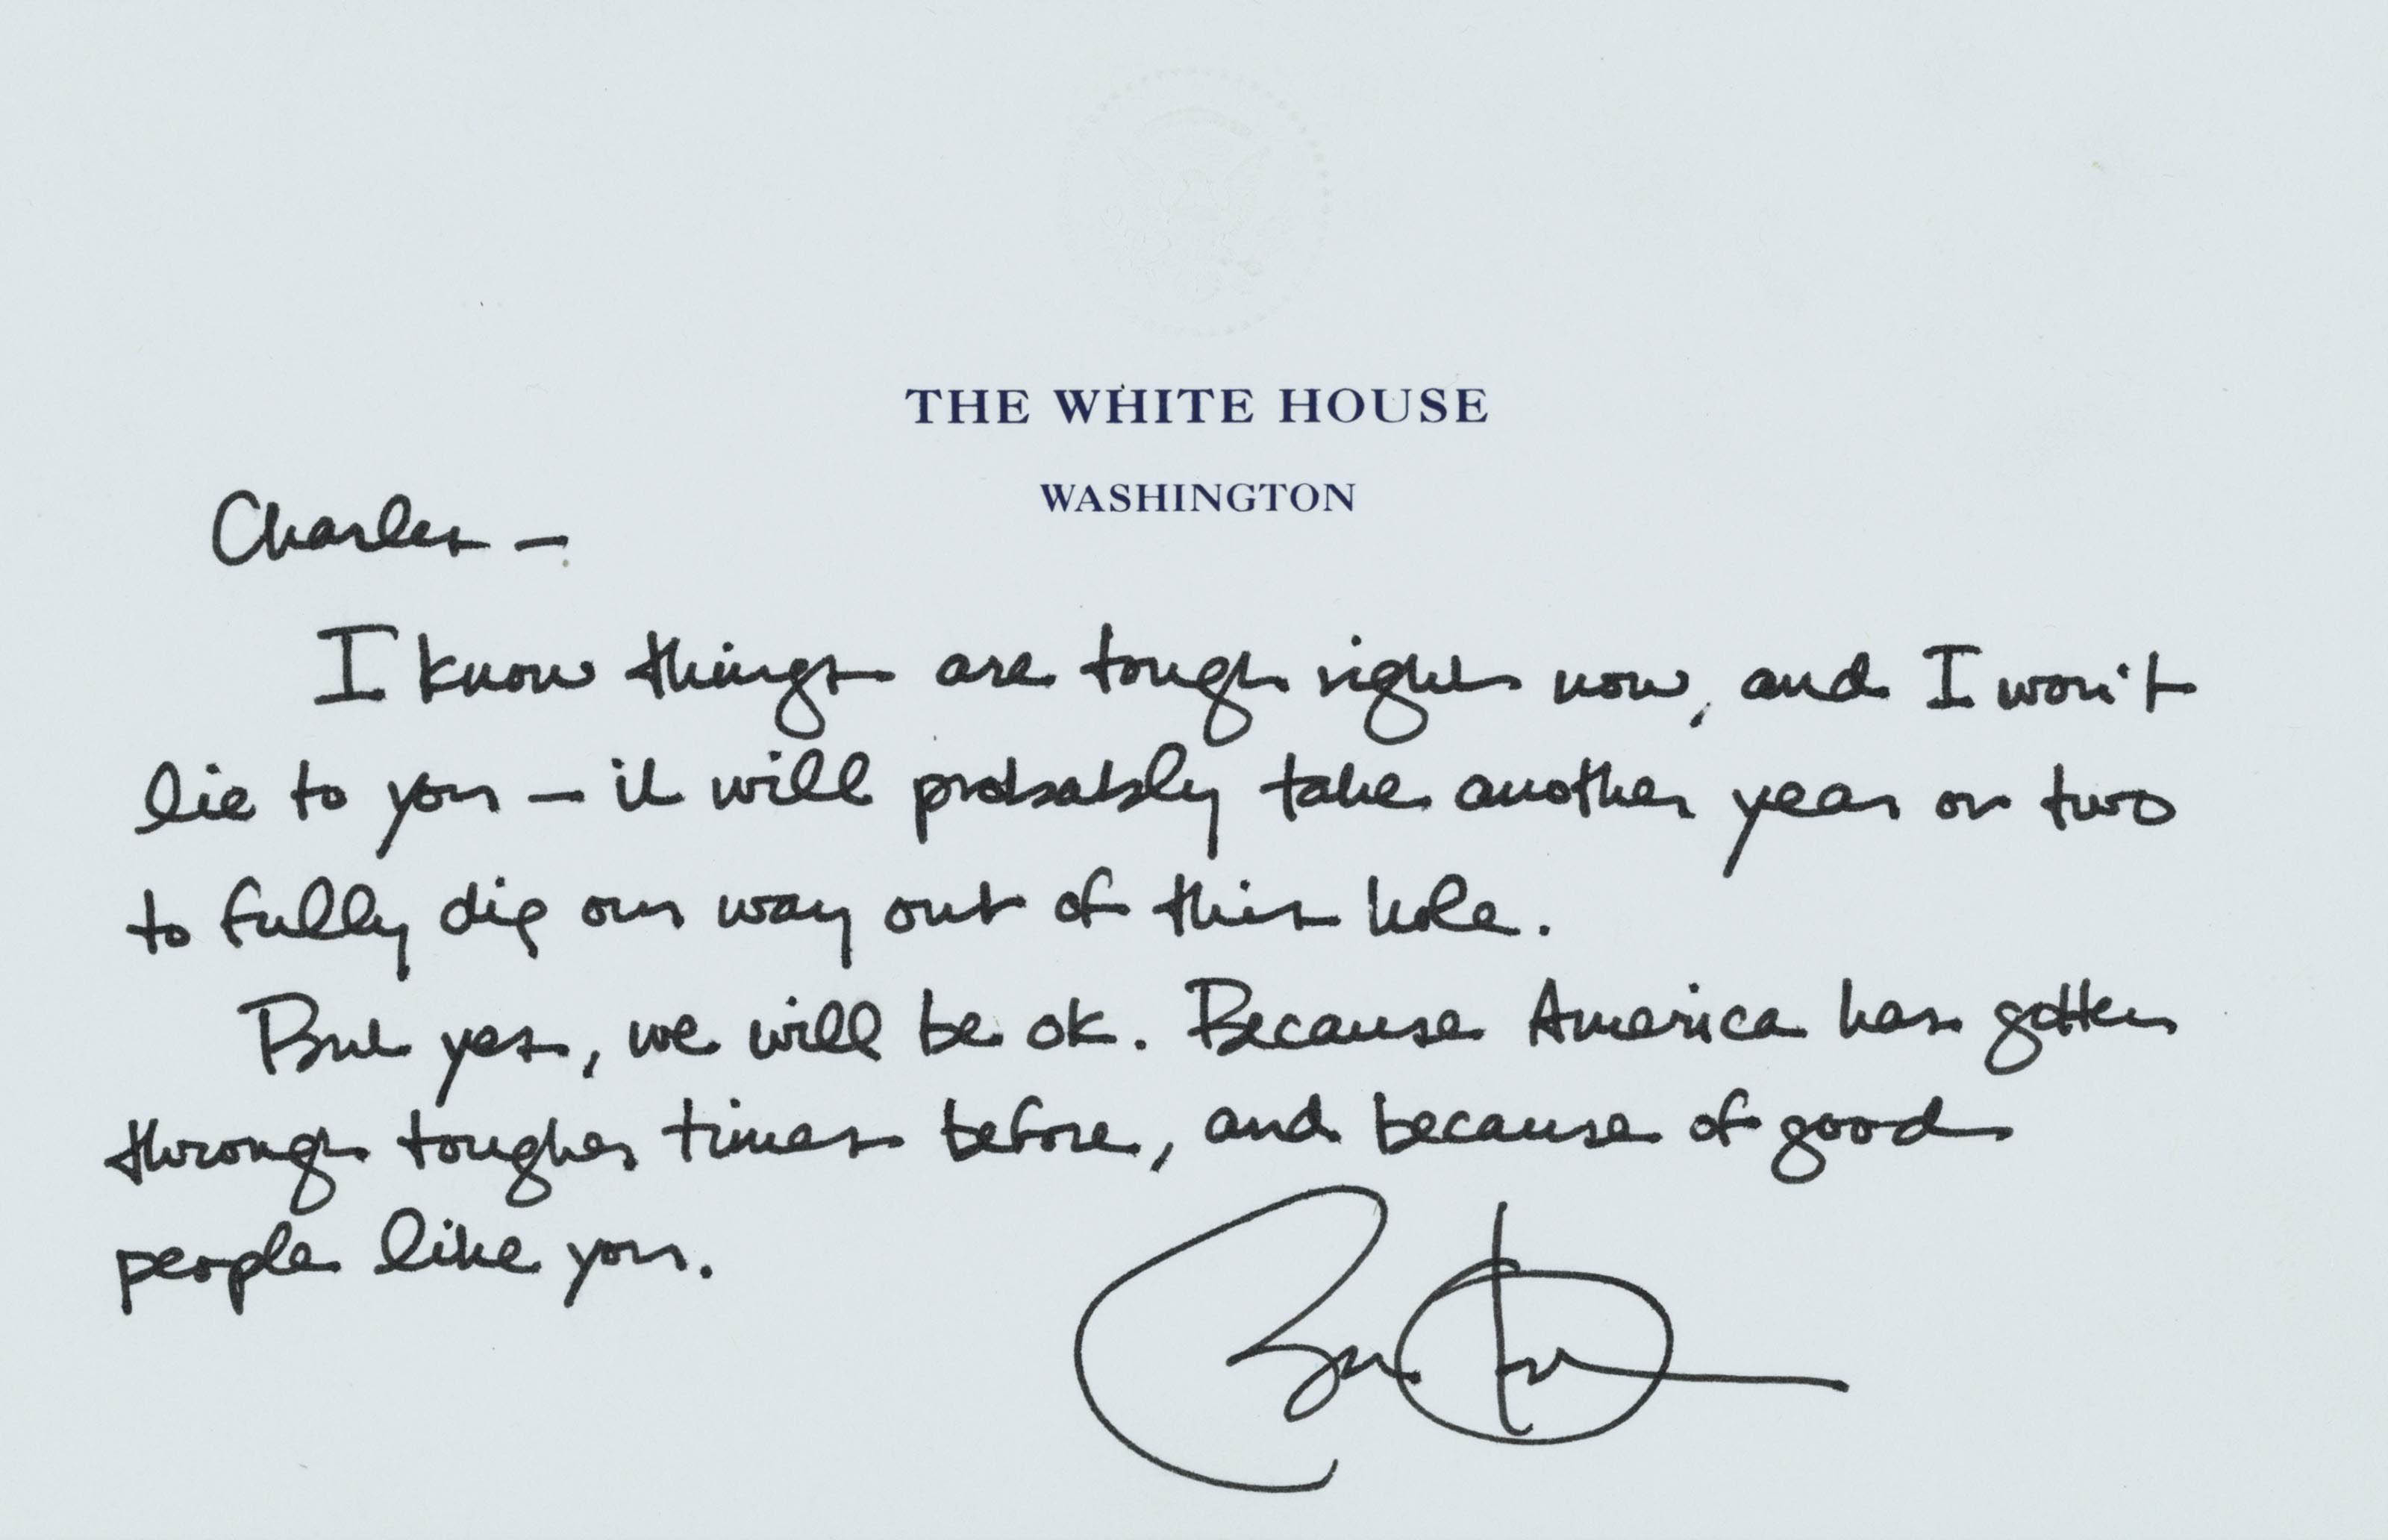 THE WHITE HOUSE
WASHINGTON
Charles —
I know things are tough right now, and I won't
lie to you — it will probably take another year or two
to fully dig our way out of this hole.
But yes, we will be ok. Because America has gotten
through tougher times before, and because of good
people like you.